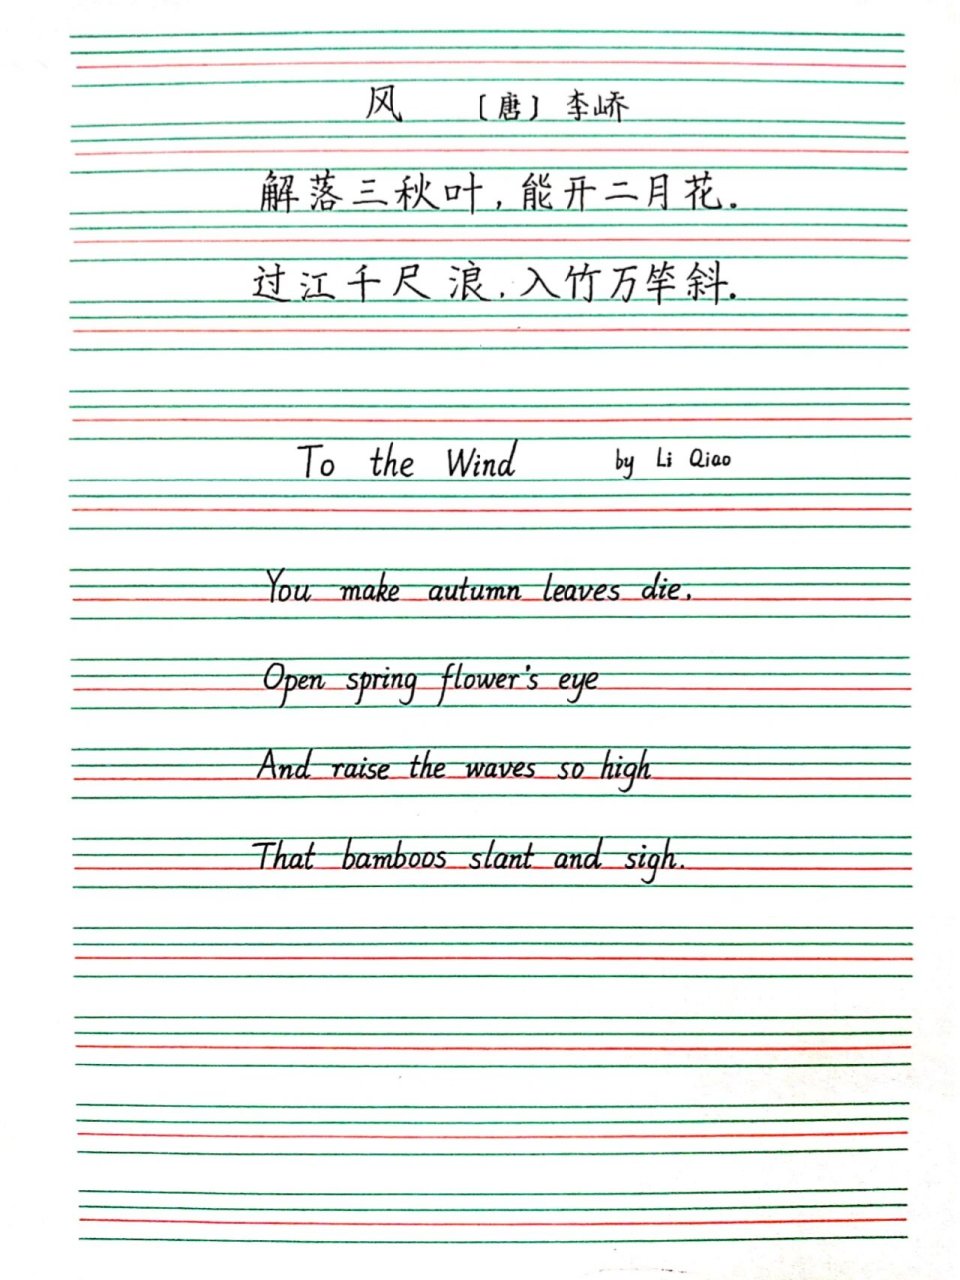 风 〔唐〕 李峤
解落三秋叶,能开二月花.
过江千尺浪,入竹万竿斜.
To the Wind by Li Qiao
You make autumn leaves die,
Open spring flower's eye
And raise the waves so high
That bamboos slant and sigh.